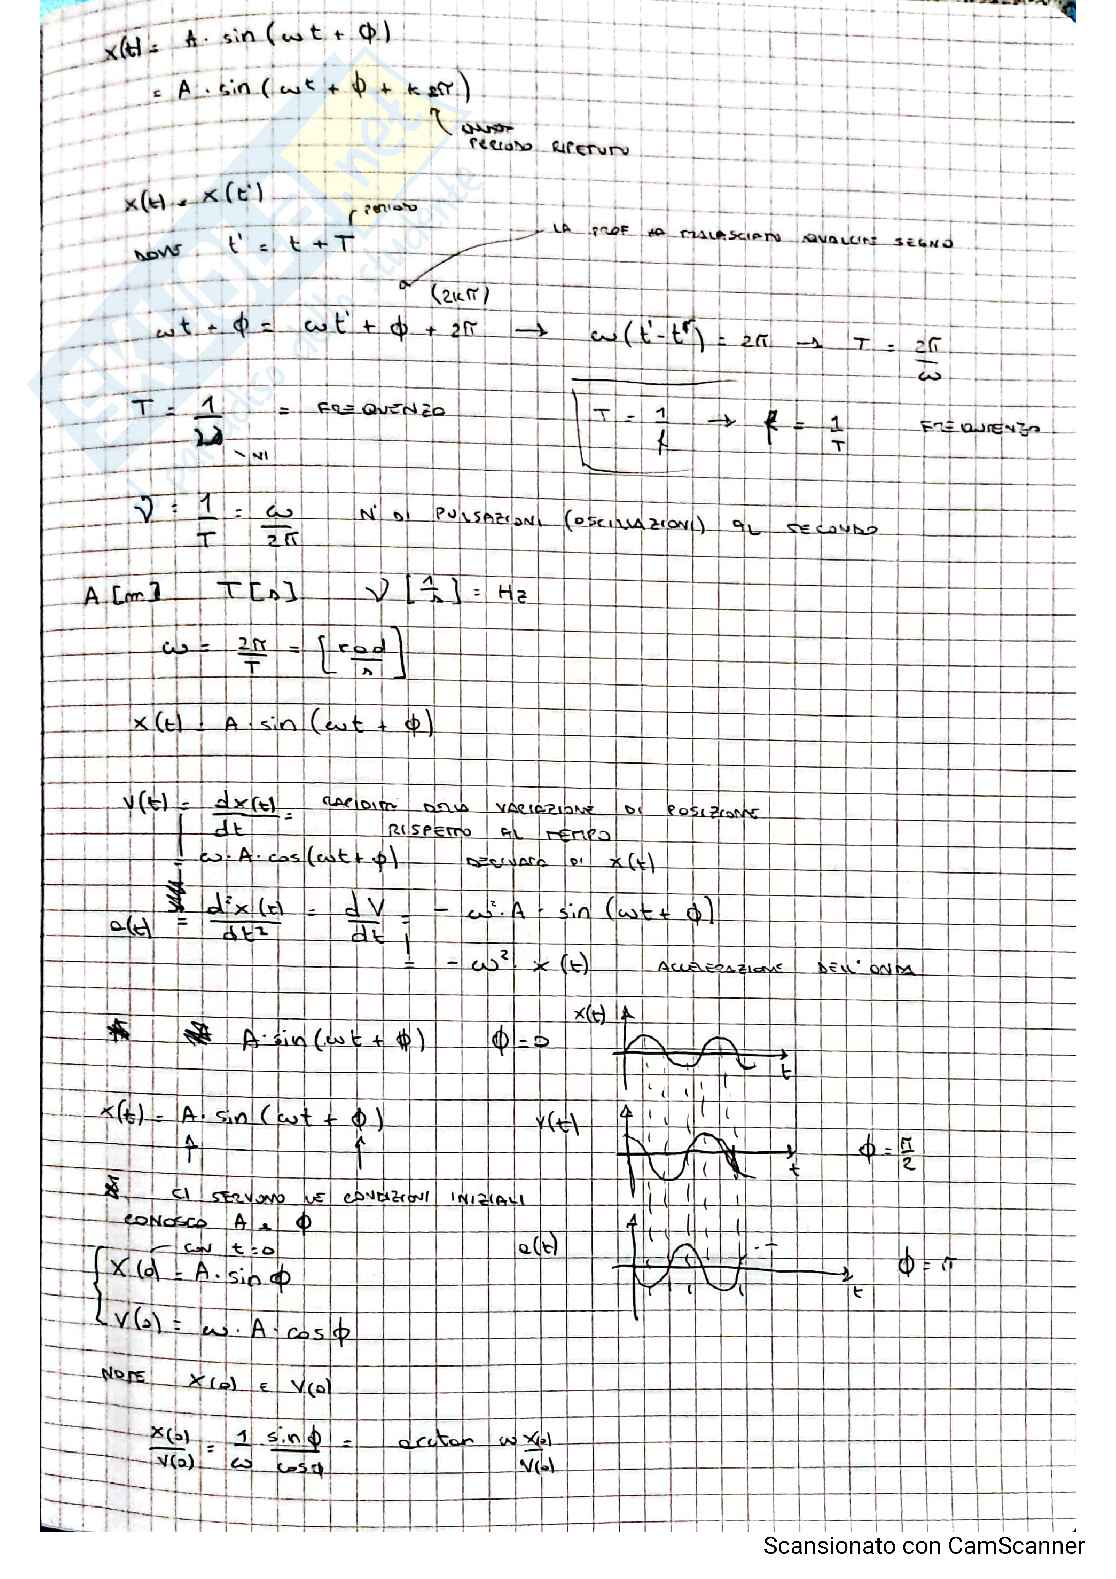 x(t) = A · sin(ωt + ϕ)
= A · sin(ωt + ϕ + k 2π)
PERIODO RIPETUTO
x(t) = x(t')
PERIODO
DOVE t' = t + T
LA PROF HA TRALASCIATO QUALCHE SEGNO
(2kπ)
ωt + ϕ = ωt' + ϕ + 2π → ω(t' - t) = 2π → T = 2π/ω
T = 1/ν = FREQUENZA
NI
T = 1/f → f = 1/T FREQUENZA
ν = 1/T = ω/2π N° DI PULSAZIONI (OSCILLAZIONI) AL SECONDO
A [m] T [s] ν [1/s] = Hz
ω = 2π/T = [rad/s]
x(t) = A · sin(ωt + ϕ)
v(t) = dx(t)/dt = RAPIDITÀ DELLA VARIAZIONE DI POSIZIONE
RISPETTO AL TEMPO
= ω · A · cos(ωt + ϕ) DERIVATA DI x(t)
a(t) = d²x(t)/dt² = dV/dt = - ω² · A · sin(ωt + ϕ)
= - ω² · x(t) ACCELERAZIONE DELL'ONDA
A · sin(ωt + ϕ) ϕ = 0
x(t)
t
x(t) = A · sin(ωt + ϕ)
v(t)
t
ϕ = π/2
CI SERVONO LE CONDIZIONI INIZIALI
CONOSCO A e ϕ
CON t = 0
a(t)
t
ϕ = π
x(0) = A · sin ϕ
v(0) = ω · A · cos ϕ
NOTE x(0) E v(0)
x(0)/v(0) = 1/ω sin ϕ/cos ϕ = arctan ω x(0)/v(0)
Scansionato con CamScanner